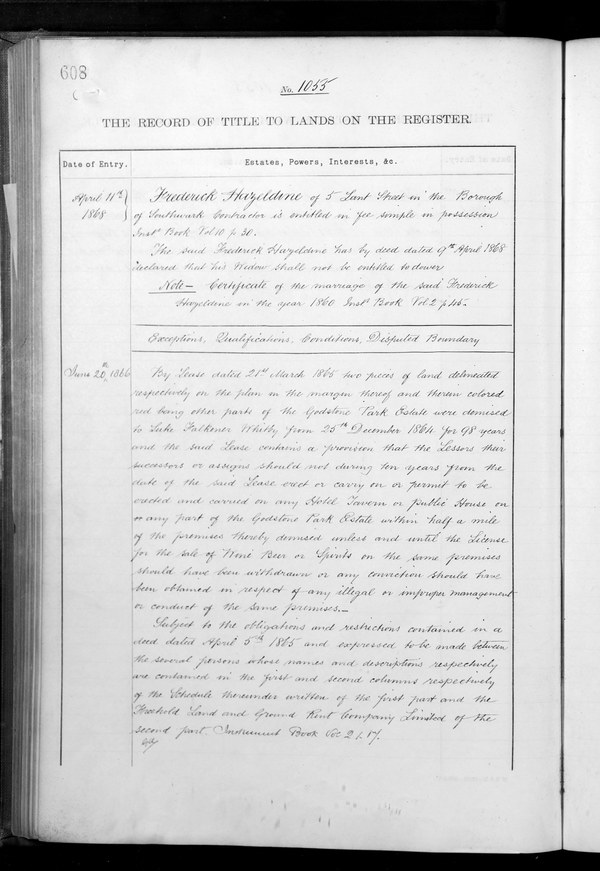 608
No. 1055
THE RECORD OF TITLE TO LANDS ON THE REGISTER.
Date of Entry.
Estates, Powers, Interests, &c.
April 11th 1868
Frederick Hazeldine of 5 Lant Street in the Borough
of Southwark Contractor is entitled in fee simple in possession
Inst Book Vol 10 p 30.
The said Frederick Hazeldine has by deed dated 9th April 1868
declared that his Widow shall not be entitled to dower
Note — Certificate of the marriage of the said Frederick
Hazeldine in the year 1860 Inst Book Vol 2 p 45.
Exceptions, Qualifications, Conditions, Disputed Boundary
June 20th 1866
By Lease dated 21st March 1865 two pieces of land delineated
respectively on the plan in the margin thereof and therein colored
red being other parts of the Godstone Park Estate were demised
to Luke Falkener Whitby from 25th December 1864 for 98 years
and the said Lease contains a provision that the Lessors their
successors or assigns should not during ten years from the
date of the said Lease erect or carry on or permit to be
erected and carried on any Hotel Tavern or Public House on
or any part of the Godstone Park Estate within half a mile
of the premises thereby demised unless and until the License
for the sale of Wine Beer or Spirits on the same premises
should have been withdrawn or any conviction should have
been obtained in respect of any illegal or improper management
or conduct of the same premises.—
Subject to the obligations and restrictions contained in a
deed dated April 5th 1865 and expressed to be made between
the several persons whose names and descriptions respectively
are contained in the first and second columns respectively
of the Schedule thereunder written of the first part and the
Freehold Land and Ground Rent Company Limited of the
second part. Instrument Book Vol 2 p. 17.